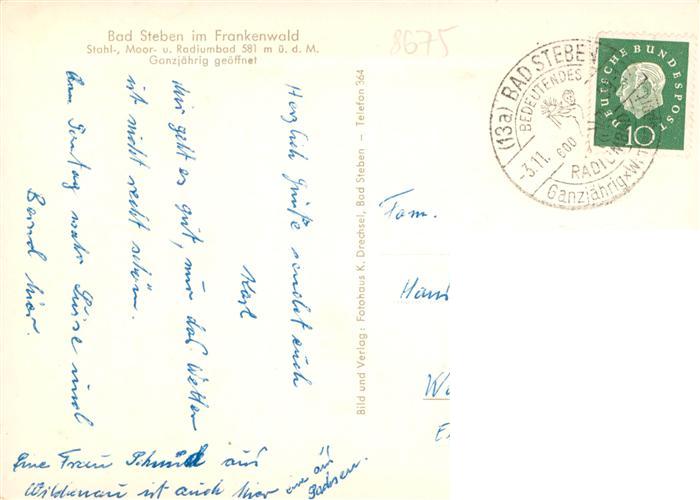 Bad Steben im Frankenwald
Stahl-, Moor- u. Radiumbad 581 m ü. d. M.
Ganzjährig geöffnet
8675
Herzlich Grüße sendet euch
Karl
Mir geht es gut, nur das Wetter
ist nicht recht schön.
Am Sonntag war Luise und
Bernd hier.
Eine Frau Schmidt aus
Wildenau ist auch hier
Bild und Verlag: Fotohaus K. Drechsel, Bad Steben - Telefon 364
Fam.
(13a) BAD STEBEN
BEDEUTENDES
-3.11.
600
RADIUMB
Ganzjährig
DEUTSCHE BUNDESPOST
10